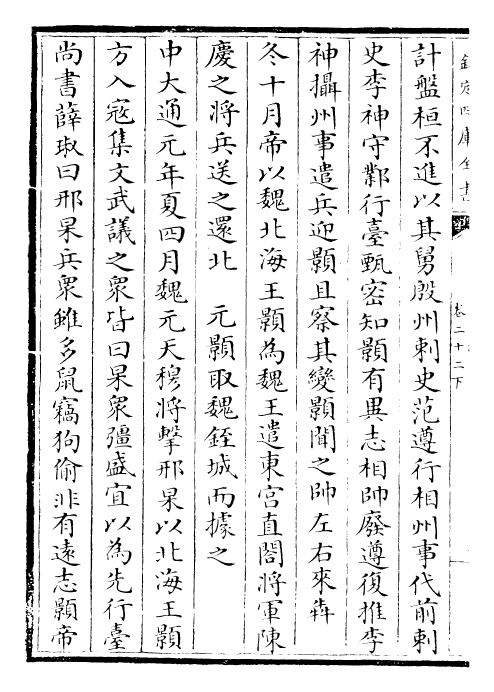 欽定四庫全書
卷二十二下
計盤桓不進以其舅殷州刺史范遵行相州事代前刺
史李神守鄴行臺甄密知顥有異志相帥廢遵復推李
神攝州事遣兵迎顥且察其變顥聞之帥左右來犇
冬十月帝以魏北海王顥為魏王遣東宮直閤將軍陳
慶之將兵送之還北　元顥取魏銍城而據之
中大通元年夏四月魏元天穆將擊邢杲以北海王顥
方入寇集文武議之衆皆曰杲衆彊盛宜以為先行臺
尚書薛琡曰邢杲兵衆雖多鼠竊狗偷非有遠志顥帝